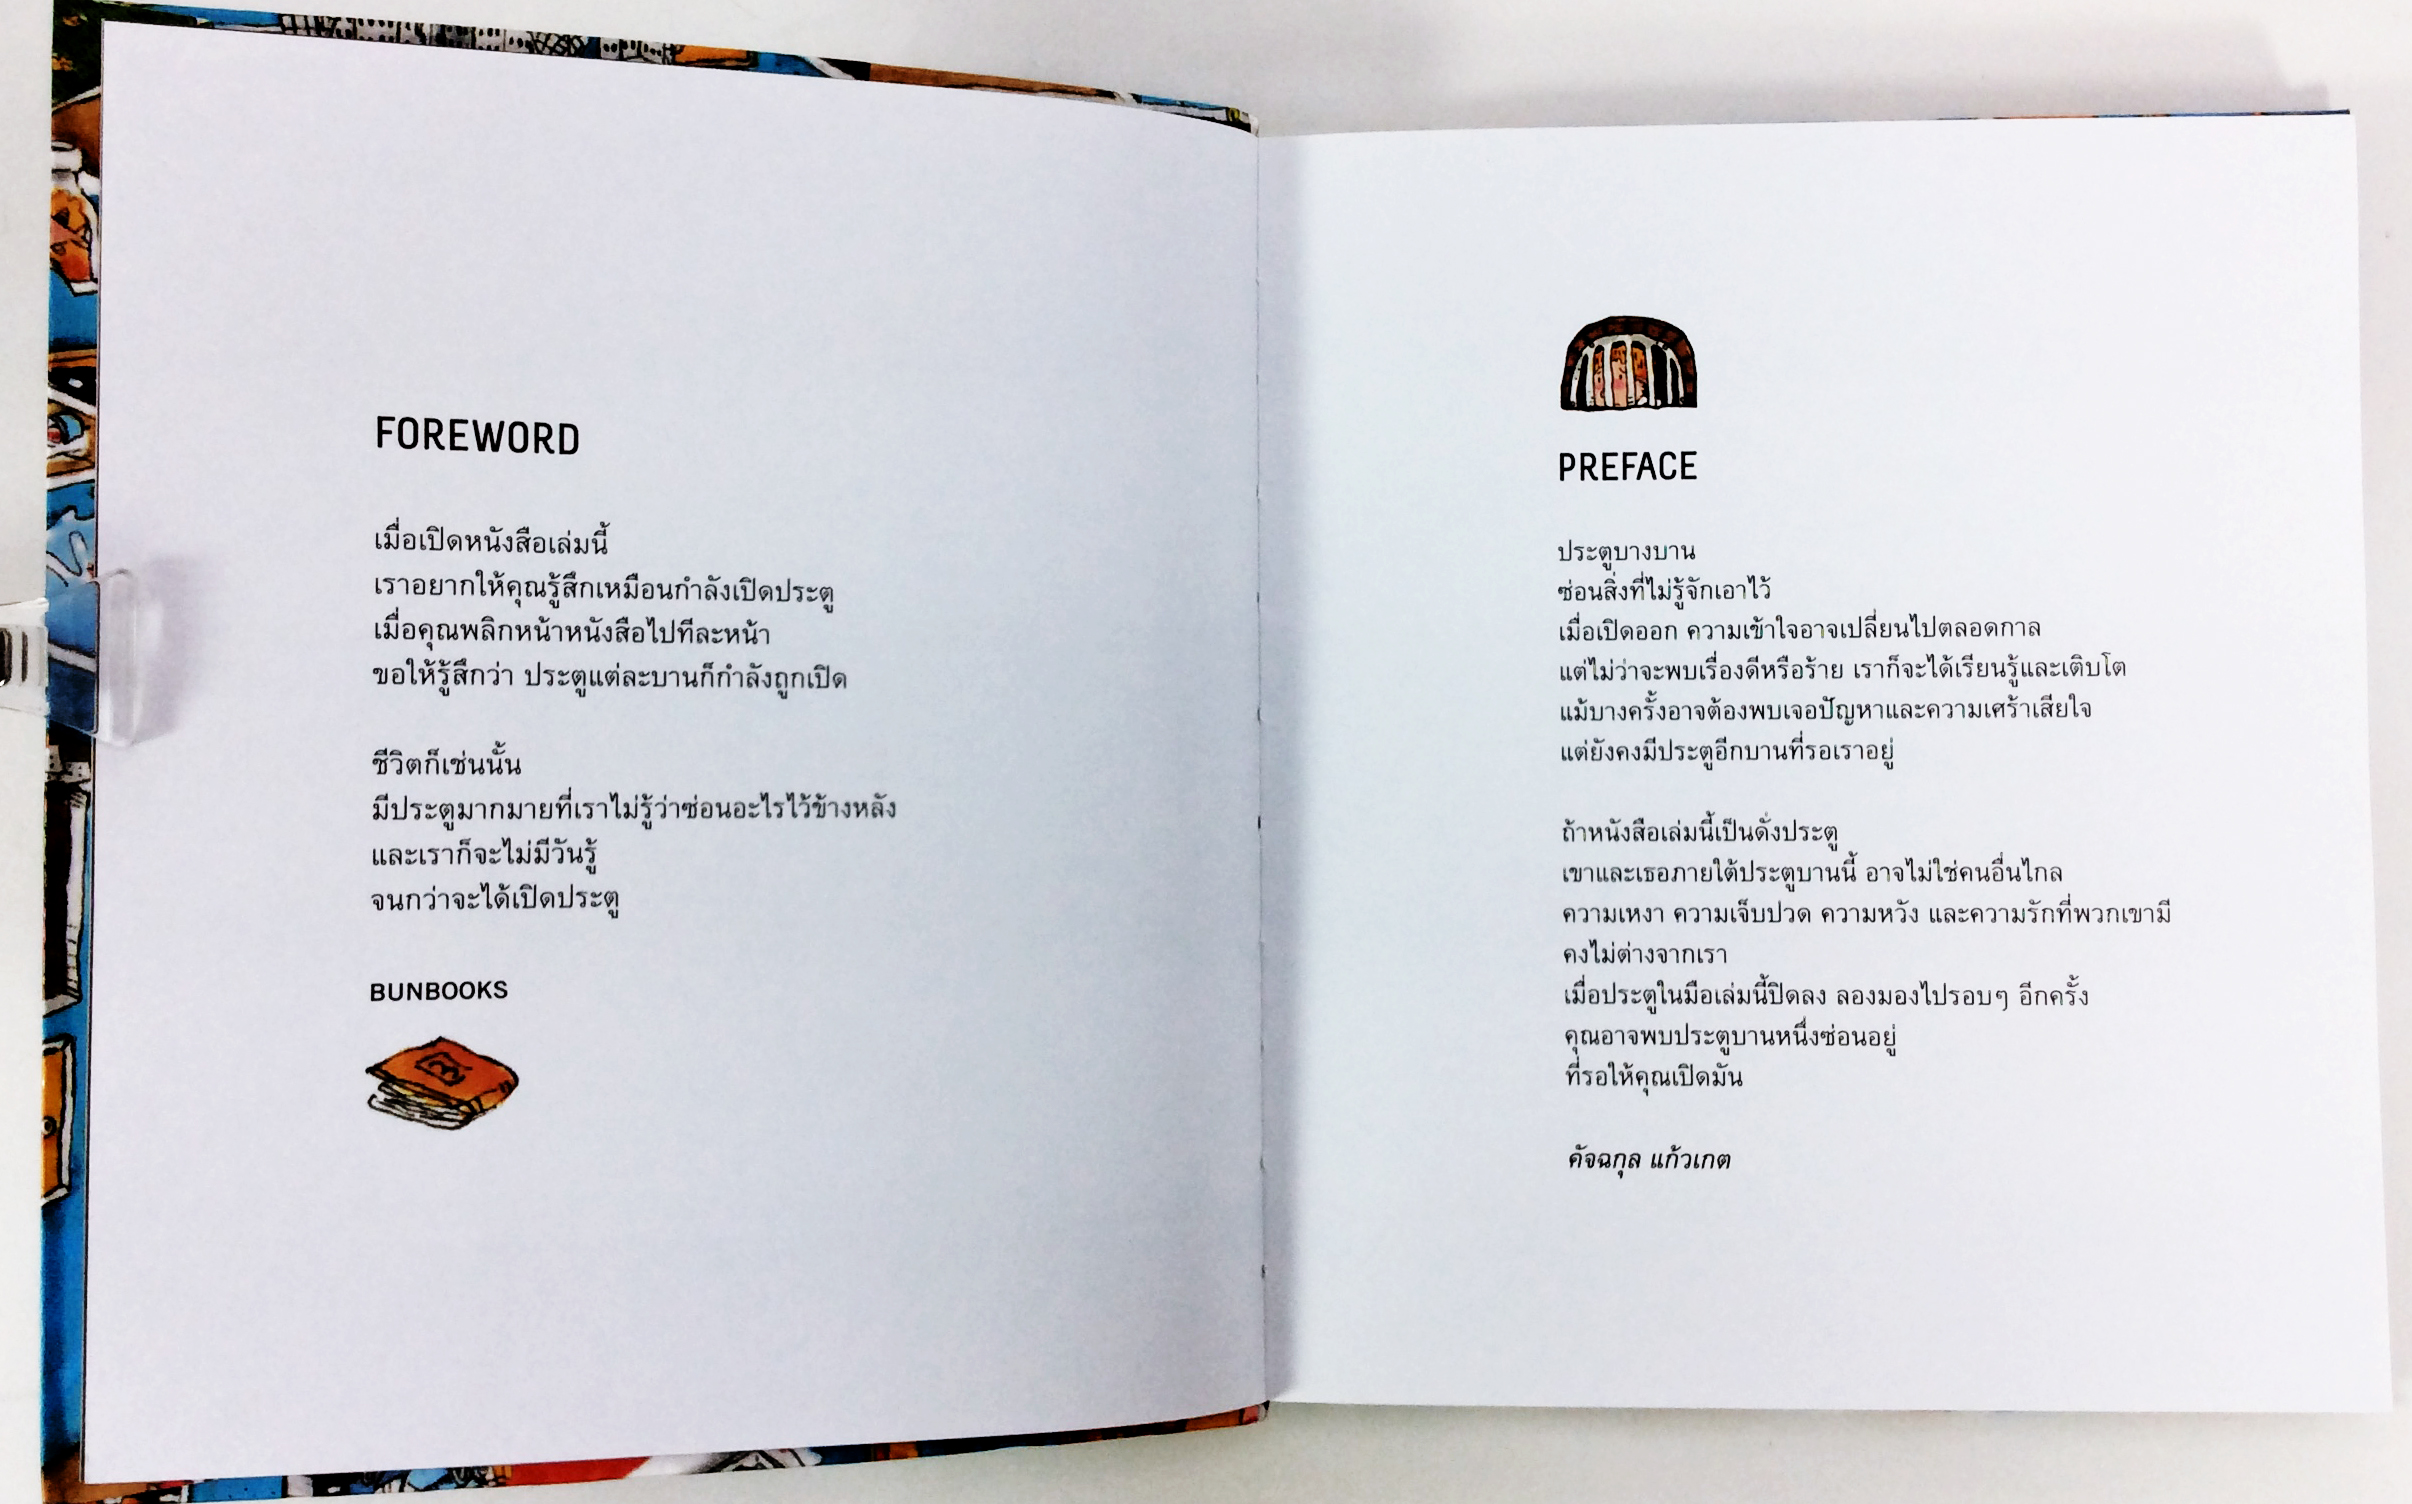 FOREWORD
เมื่อเปิดหนังสือเล่มนี้
เราอยากให้คุณรู้สึกเหมือนกำลังเปิดประตู
เมื่อคุณพลิกหน้าหนังสือไปทีละหน้า
ขอให้รู้สึกว่า ประตูแต่ละบานก็กำลังถูกเปิด
ชีวิตก็เช่นนั้น
มีประตูมากมายที่เราไม่รู้ว่าซ่อนอะไรไว้ข้างหลัง
และเราก็จะไม่มีวันรู้
จนกว่าจะได้เปิดประตู
BUNBOOKS
PREFACE
ประตูบางบาน
ซ่อนสิ่งที่ไม่รู้จักเอาไว้
เมื่อเปิดออก ความเข้าใจอาจเปลี่ยนไปตลอดกาล
แต่ไม่ว่าจะพบเรื่องดีหรือร้าย เราก็จะได้เรียนรู้และเติบโต
แม้บางครั้งอาจต้องพบเจอปัญหาและความเศร้าเสียใจ
แต่ยังคงมีประตูอีกบานที่รอเราอยู่
ถ้าหนังสือเล่มนี้เป็นดั่งประตู
เขาและเธอภายใต้ประตูบานนี้ อาจไม่ใช่คนอื่นไกล
ความเหงา ความเจ็บปวด ความหวัง และความรักที่พวกเขามี
คงไม่ต่างจากเรา
เมื่อประตูในมือเล่มนี้ปิดลง ลองมองไปรอบๆ อีกครั้ง
คุณอาจพบประตูบานหนึ่งซ่อนอยู่
ที่รอให้คุณเปิดมัน
คัจฉกุล แก้วเกต